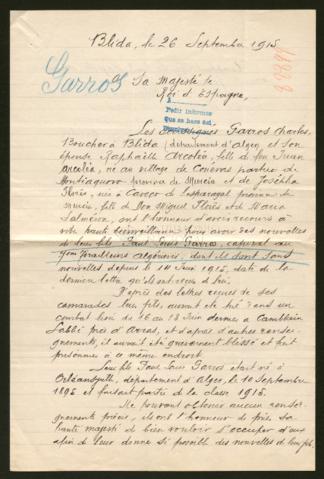 Blida, le 26 Septembre 1915
Garros
Sa Majesté le
Roi d'Espagne,
Pedir informes
Que se hace así
Les soussignés Garros Charles,
Boucher à Blida (département d'Alger) et son
épouse Raphaëlle Arcoléa, fille de Don Juan
Arcoléa, né au village de
province de Murcie et de Josépha
Florès, née à province de
Murcie, fille de Don Miguel Florès et de Maria
Salméron, ont l'honneur d'avoir recours à
votre haute bienveillance pour avoir des nouvelles
de leur fils Paul Louis Garros, caporal au
Tirailleurs algériens, dont ils sont sans
nouvelles depuis le 14 Juin 1915, date de la
dernière lettre qu'ils ont reçue de lui.
D'après des lettres reçues de ses
camarades leur fils, aurait été dans un
combat livré du 16 au 18 Juin dernier à
près d'Arras, et d'après d'autres rensei-
gnements, il aurait été gravement blessé et fait
prisonnier à ce même endroit.
Leur fils Paul Louis Garros était né à
Orléansville, département d'Alger, le 10 Septembre
1895 et faisait partie de la classe 1915.
Ne pouvant obtenir aucun rensei-
gnement précis, ils ont l'honneur de prier sa
haute majesté de bien vouloir s'occuper d'eux
afin de leur donner si possible des nouvelles de leur fils